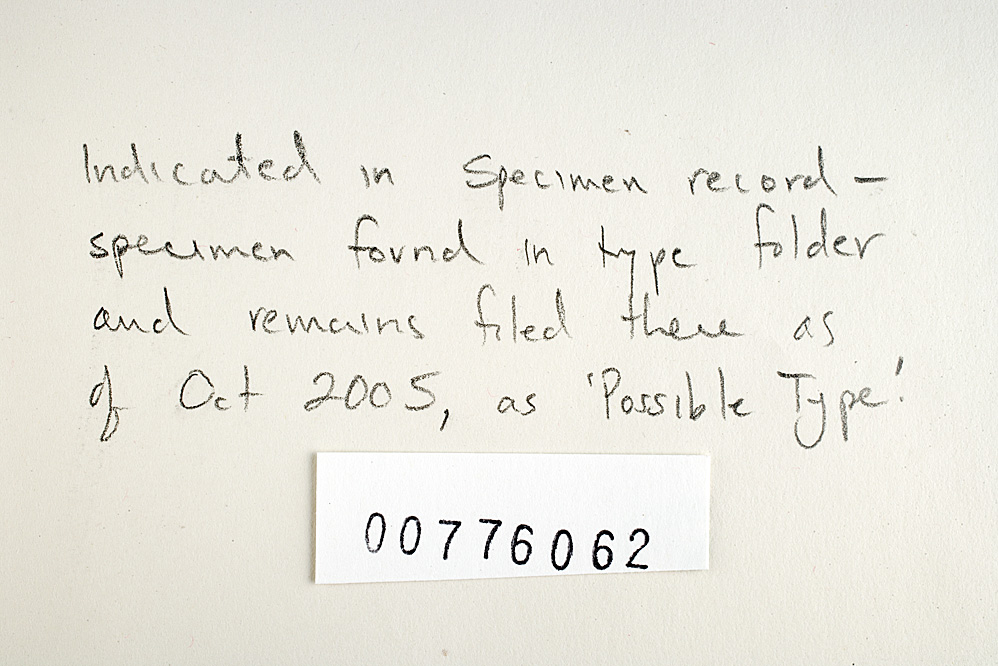 Indicated in specimen record –
specimen found in type folder
and remains filed there as
of Oct 2005, as 'Possible Type'.
00776062